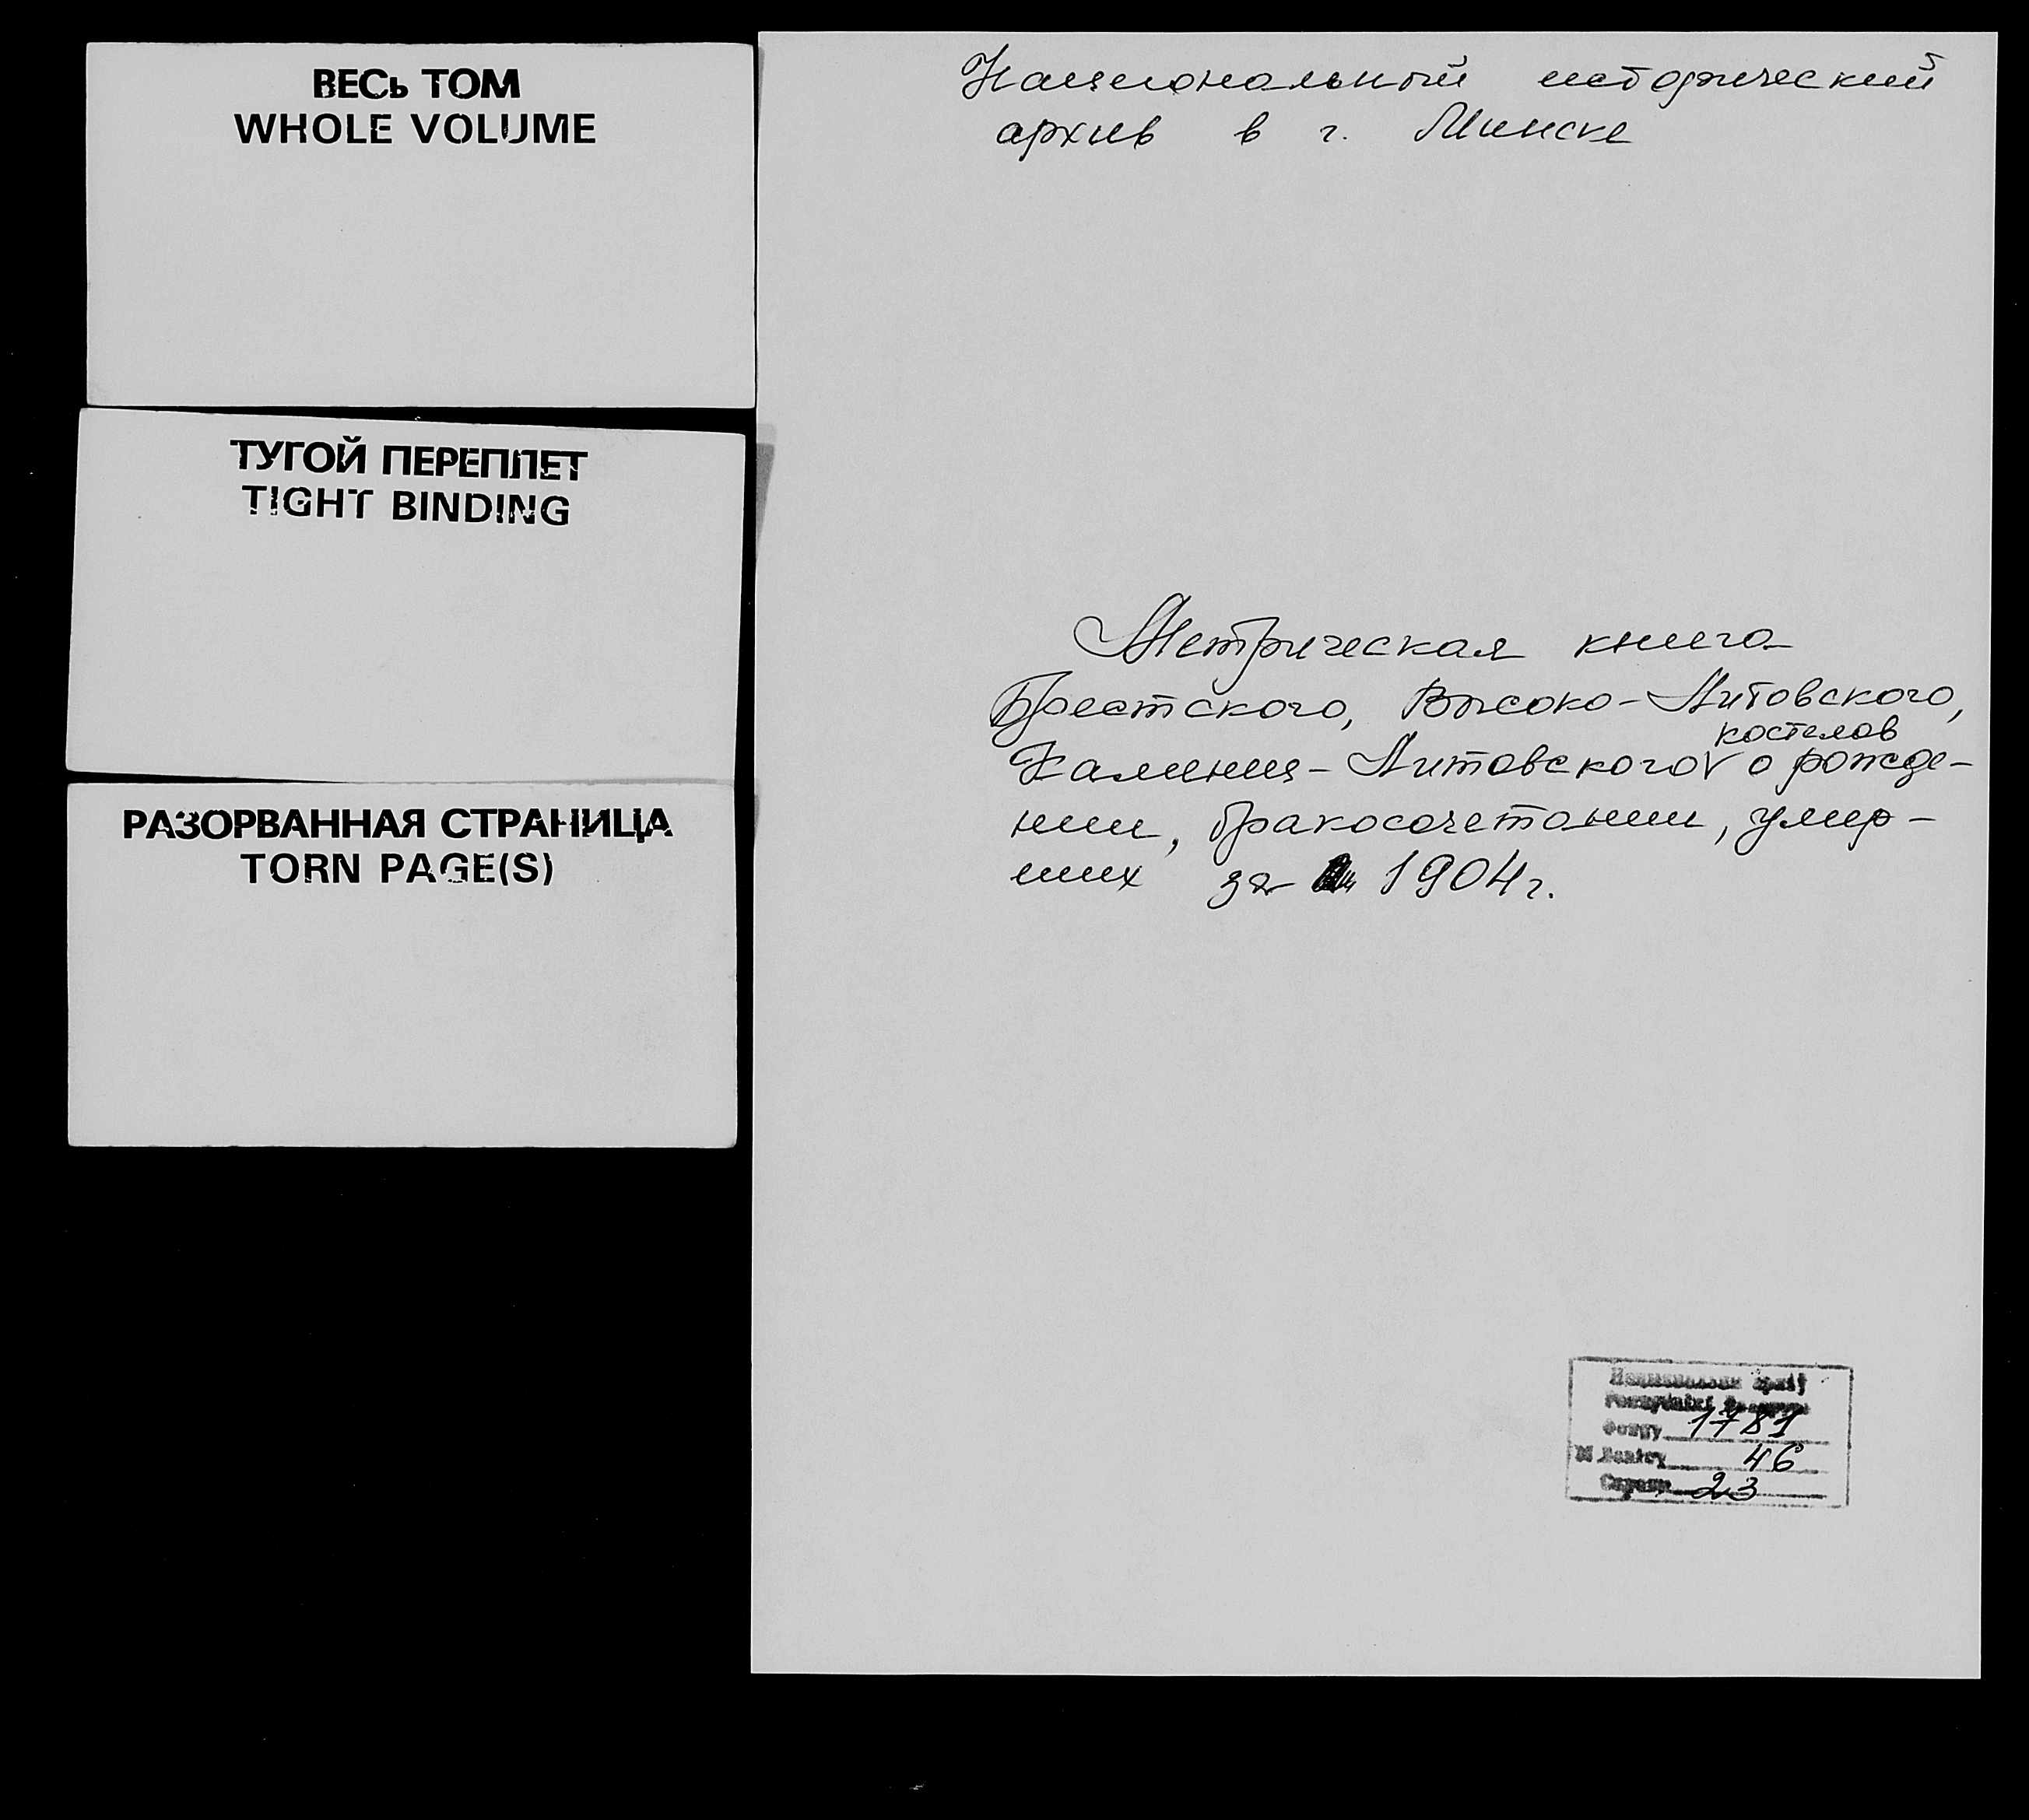 ВЕСЬ ТОМ
WHOLE VOLUME
ТУГОЙ ПЕРЕПЛЕТ
TIGHT BINDING
РАЗОРВАННАЯ СТРАНИЦА
TORN PAGE(S)
Национальный исторический
архив в г. Минске
Метрическая книга
Брестского, Высоко-Литовского,
костелов
Каменец-Литовского V о рожде-
нии, бракосочетании, умер-
ших за 1904 г.
Фонду 1781
46
23